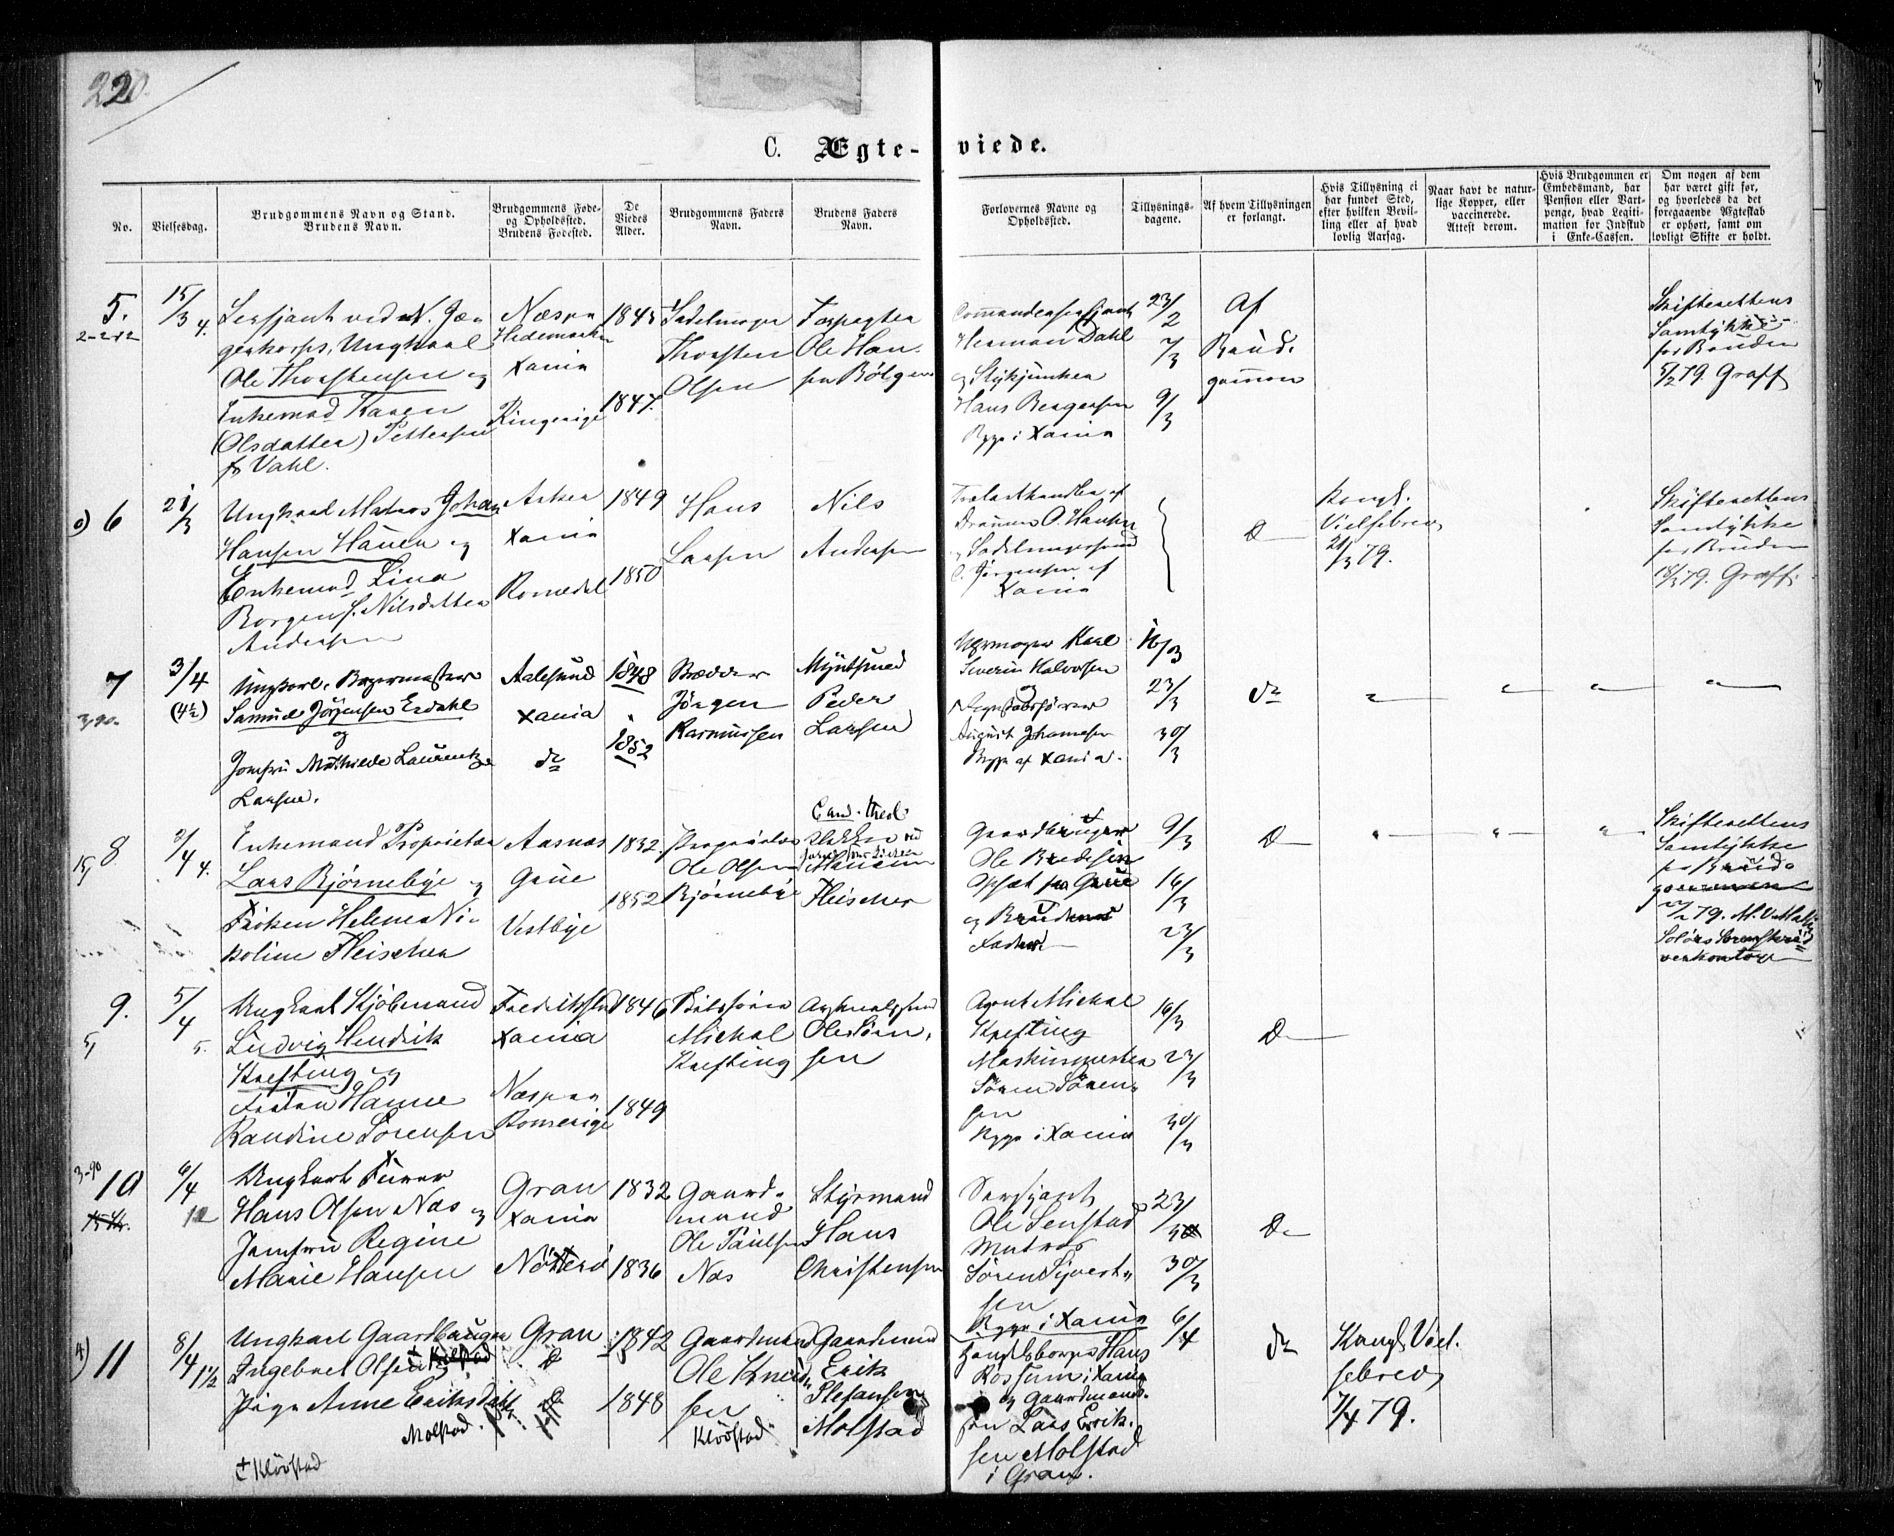 220.
C. Ægte-viede.
No.
Vielsesdag.
Brudgommens Navn og Stand.
Brudens Navn.
Brudgommens Føde-
og Opholdssted.
Brudens Fødested.
De
Viedes
Alder.
Brudgommens Faders
Navn.
Brudens Faders
Navn.
Forlovernes Navne og
Opholdssted.
Tillysnings-
dagene.
Af hvem Tillysningen
er forlangt.
Hvis Tillysning ei
har fundet Sted,
efter hvilken Bevil-
ling eller af hvad
lovlig Aarsag.
Naar havt de natur-
lige Kopper, eller
vaccinerede.
Attest derom.
Hvis Brudgommen er
Embedsmand, har
Pension eller Vart-
penge, hvad Legiti-
mation for Indskud
i Enke-Cassen.
Om nogen af dem
har været gift før,
og hvorledes da det
foregaaende Ægteskab
er ophørt, samt om
lovligt Skifte er holdt.
5.
15/3 4.
Sersjant ved N. Jæ-
gerkorps, Ungkarl
Ole Thorstensen og
Enkemad. Karen
(Olsdatter) Pettersen
f. Dahl.
Næsra
Hedemarken
Xania
Ringerige
1845
1847.
Sadelmager
Thorsten
Olsen
Forpagter
Ole Han-
sen Bölgen
Commandersersjant
Herman Dahl
og Stykjunker
Hans Bergersen
Begge i Xania
23/2
7/3
9/3
Af
Brud-
gommen
Skifterettens
Samtykke
for Bruden
5/2 79. Graff
6
21/3
Ungkarl Matros Johan
Hansen Hauen og
Enkemad. Lina
Borgen f. Nilsdatter
Andersen
Asker
Xania
Romedal
1849
1850
Hans
Larsen
Nils
Andersen
Trælasthandler af
Drammen O. Hansen
og Sadelmagersvend
C. Jørgensen af
Xania
D
Kongl.
Vielsebrev
21/3 79.
Skifterettens
Samtykke
for Bruden
18/3 79. Graff
7
3/4
(4½)
Ungkarl, Bagermester
Samuel Jørgensen Erdahl
og
Jomfru Mathilde Laurentze
Larsen.
Aalesund
Xania
do
1848
1852
Bødker
Jörgen
Rasmussen
Myntsmed
Peder
Larsen
Uhrmager Karl
Severin Halvorsen
og
Regnskabsfører
August Johannesen
Begge af Xania.
16/3
23/3
30/3
do
8
2/4 4.
Enkemand Proprietær
Lars Bjørneby og
Frøken Helene Ni-
koline Fleischer
Aasnæs
Grue
Vestbye
1832.
1852
Proprietær
Ole Olsen
Bjørneby
Cand. theol.
Fleischer
Gaardbruger
Ole Bredesen
Opsæt fra Grue
og Brudens
Fader
9/3
16/3
23/3
D
Skifterettens
Samtykke
for Brud-
gommen
79.
9.
5/4 5.
Ungkarl Kjøbmand
Ludvig Hendrik
Krefting og
Frøken Hanne
Randine Sörensen
Fredrikstad
Xania
Næs paa
Romerige
1846
1849
Michal
Krefting
Ole Sören-
sen
Agent Michal
Krefting
Maskinmester
Sören Sören-
sen
Begge i Xania
16/3
23/3
30/3
D
3-90
10
6/4
12
Ungkarl Furer
Hans Olsen Næs og
Jomfru Regine
Marie Hansen
Gran
Xania
Nötterö
1832
1836
Gaard-
mand
Ole Paulsen
Næs
Styrmand
Hans
Christensen
Sersjant
Ole Senstad
Matros
Sören Sivert-
sen
Begge i Xania
23/3
30/3
6/4
D
4) 11
8/4 1½
Ungkarl Gaardbruger
Ingebret Olsen
Pige Anne Eriksdatter
Molstad.
+ Klövstad
Gran
D
D
1842
1848
Gaardmand
Ole Knud-
sen
Klövstad
Gaardmand
Erik
Stefansen
Molstad
Hans
Rossum i Xania
og Gaardmands-
sön Lars Erik-
sen Molstad
i Gran.
do
Kongl. Viel-
sebrev
7/4 79.